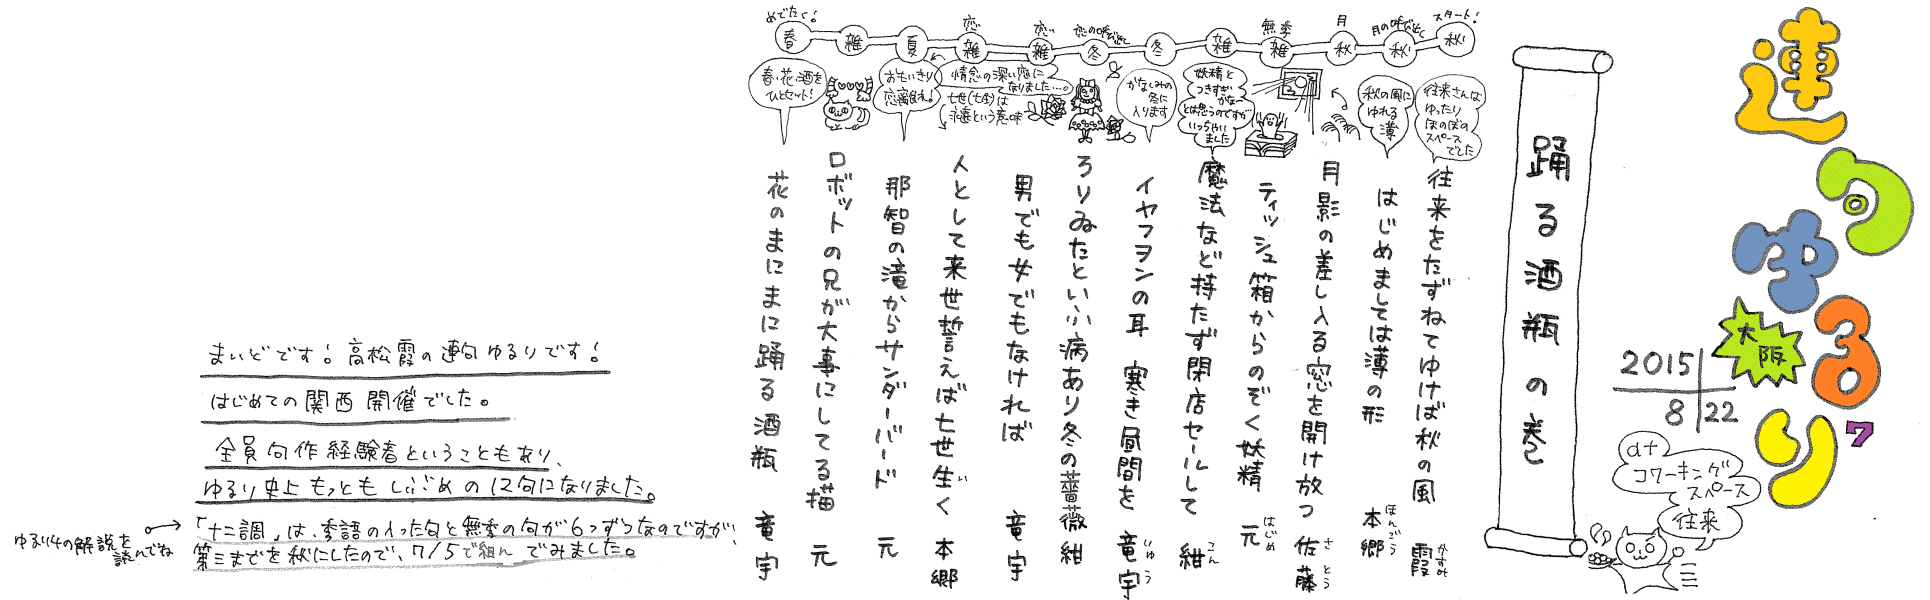 連句ゆるり7
大阪
2015 8/22
at
コワーキング
スペース
往来
踊る酒瓶の巻
スタート!
秋
月の呼び出し
秋
月
秋
無季
雑
雑
冬
恋の呼び出し
冬
恋
雑
恋
雑
夏
雑
めでたく!
春
往来さんは
ゆったり
ほのぼの
スペース
でした
秋の風に
ゆれる
薄
妖精と
つきすぎ
かなー
とは思うのですが
いっちゃい
ました
かなしみの
冬に
入ります
情念の深い恋に
なりました…。
七世(七生)は
永遠という意味
おもいきり
恋離れ!
春・花・酒を
ひとセット!
往来をたずねてゆけば秋の風 霞 かすみ
はじめましては薄の形 本郷 ほんごう
月影の差し入る窓を開け放つ 佐藤 さとう
ティッシュ箱からのぞく妖精 元 はじめ
魔法など持たず閉店セールして 紺 こん
イヤフォンの耳 寒き昼間を 竜宇 りゅう
ろりゐたといふ病あり冬の薔薇 紺
男でも女でもなければ 竜宇
人として来世誓えば七世生く 本郷
那智の滝からサンダーバード 元
ロボットの兄が大事にしてる猫 元
花のまにまに踊る酒瓶 竜宇
まいどです! 高松霞の連句ゆるりです!
はじめての関西開催でした。
全員句作経験者ということもあり、
ゆるり史上もっともしぶめの12句になりました。
「十二調」は、季語の入った句と無季の句が6つずつなのですが、
第三までを秋にしたので、7/5で組んでみました。
ゆるり4の解説を
読んでね